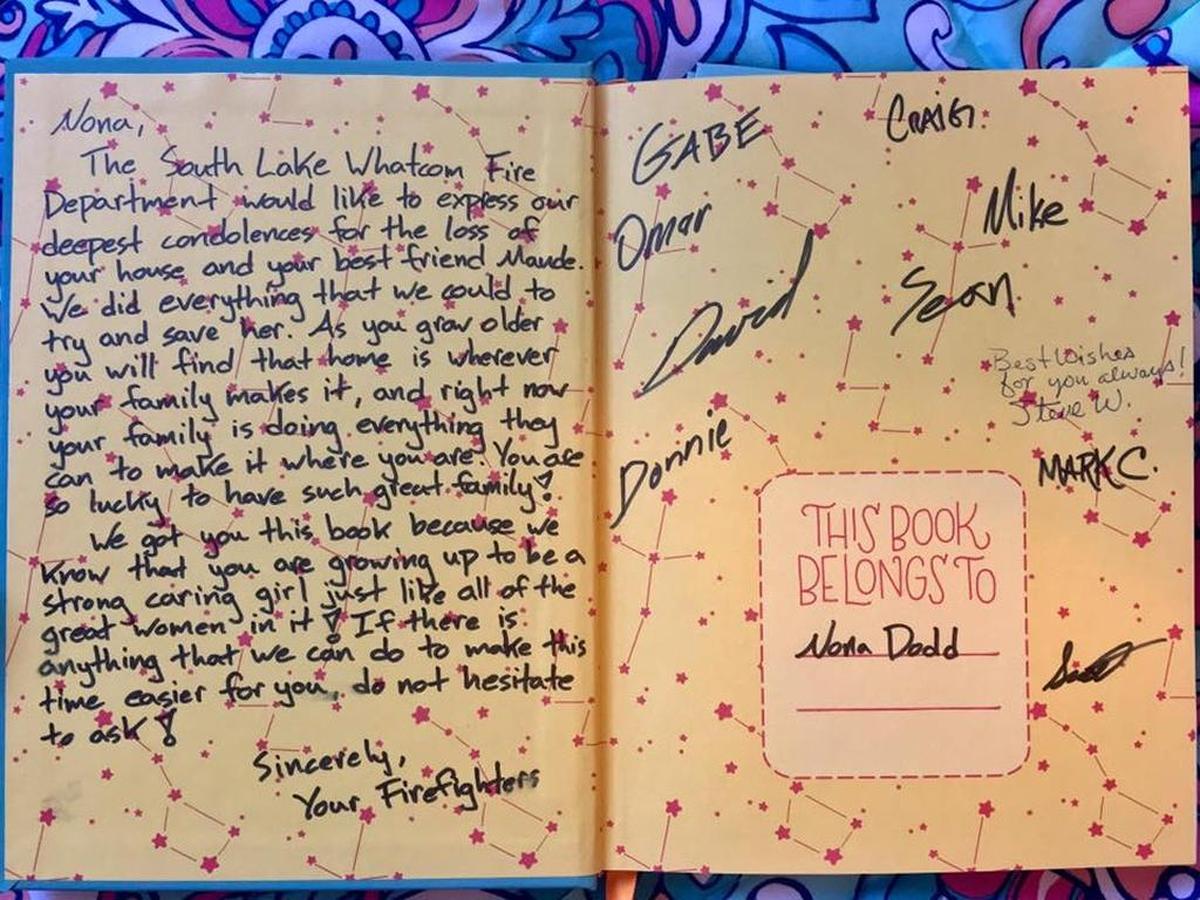 Nona,
The South Lake Whatcom Fire
Department would like to express our
deepest condolences for the loss of
your house and your best friend Maude.
We did everything that we could to
try and save her. As you grow older
you will find that home is wherever
your family makes it, and right now
your family is doing everything they
can to make it where you are. You are
so lucky to have such great family!
We got you this book because we
know that you are growing up to be a
strong caring girl just like all of the
great women in it! If there is
anything that we can do to make this
time easier for you, do not hesitate
to ask!
Sincerely,
Your Firefighters
GABE
CRAIG.
Omar
Mike
David
Sean
Best Wishes
for you always!
Steve W.
Donnie
MARK C.
THIS BOOK
BELONGS TO
Nona Dodd